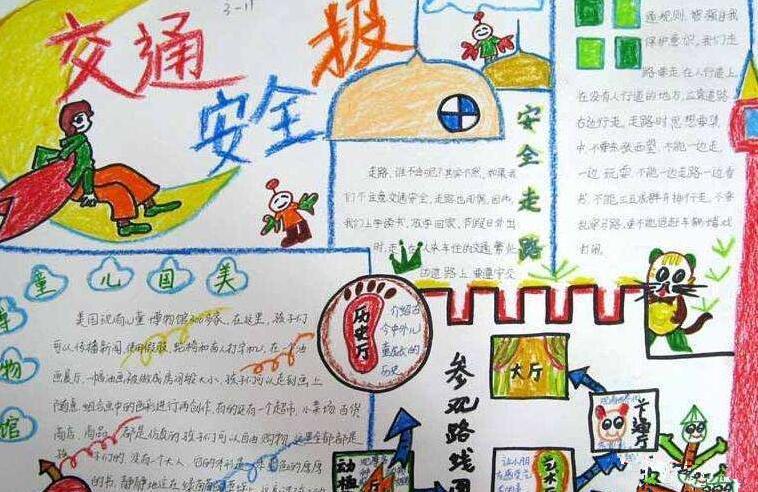 3-11
交通
安全报
安全走路
走路,谁不会呢?其实不然,如果我
们不注意交通安全,走路也闯祸,因此,
我们上学读书,放学回家,节假日外出
时,走在人来车往的交通繁忙
的道路上,要遵守交
通规则,增强自我
保护意识,我们走
路要走在人行道上,
在没有人行道的地方,应靠道路
右边行走。走路时思想要集
中,不要东张西望,不能一边走
一边玩耍,不能一边走路一边看
书,不能三五成群并排行走,不要
乱穿马路,更不能追赶车辆嬉戏
打闹。
美国儿童
博物馆
美国现有儿童博物馆300多家,在这里,孩子们
可以传播新闻,使用假肢、轮椅和盲人打字机,在一个油
画展厅,一幅油画被做成房间般大小,孩子们可以走到画上
随意组合画中的色彩进行再创作,有的还有一个超市,小菜场、百货
商店,商品
都是仿真的,孩子们可以自由购物,这里全部都是
孩子们的,没有一个大人,
的书,静静地
历史厅
介绍古
今中外儿
童成长的
历史
参观路线图
大厅
卡通厅
动植
艺术厅
让小朋
友感受艺